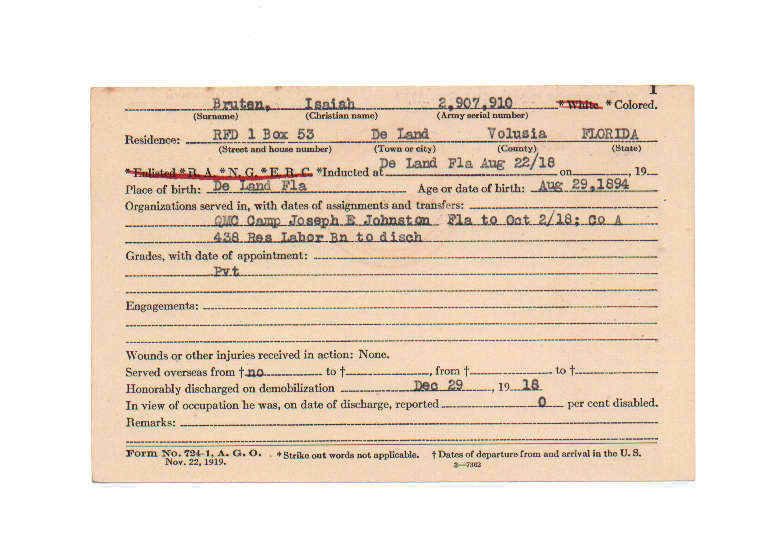 1
Bruten, Isaiah 2,907,910 * White * Colored.
(Surname) (Christian name) (Army serial number)
Residence: RFD 1 Box 53 De Land Volusia FLORIDA
(Street and house number) (Town or city) (County) (State)
* Enlisted * R. A. * N. G. * E. R. C. *Inducted at De Land Fla Aug 22/18 on , 19
Place of birth: De Land Fla Age or date of birth: Aug 29,1894
Organizations served in, with dates of assignments and transfers:
QMC Camp Joseph E Johnston Fla to Oct 2/18; Co A
438 Res Labor Bn to disch
Grades, with date of appointment:
Pvt
Engagements:
Wounds or other injuries received in action: None.
Served overseas from † no to † , from † to †
Honorably discharged on demobilization Dec 29 , 19 18
In view of occupation he was, on date of discharge, reported 0 per cent disabled.
Remarks:
Form No. 724-1, A. G. O. * Strike out words not applicable. † Dates of departure from and arrival in the U. S.
Nov. 22, 1919. 3—7362